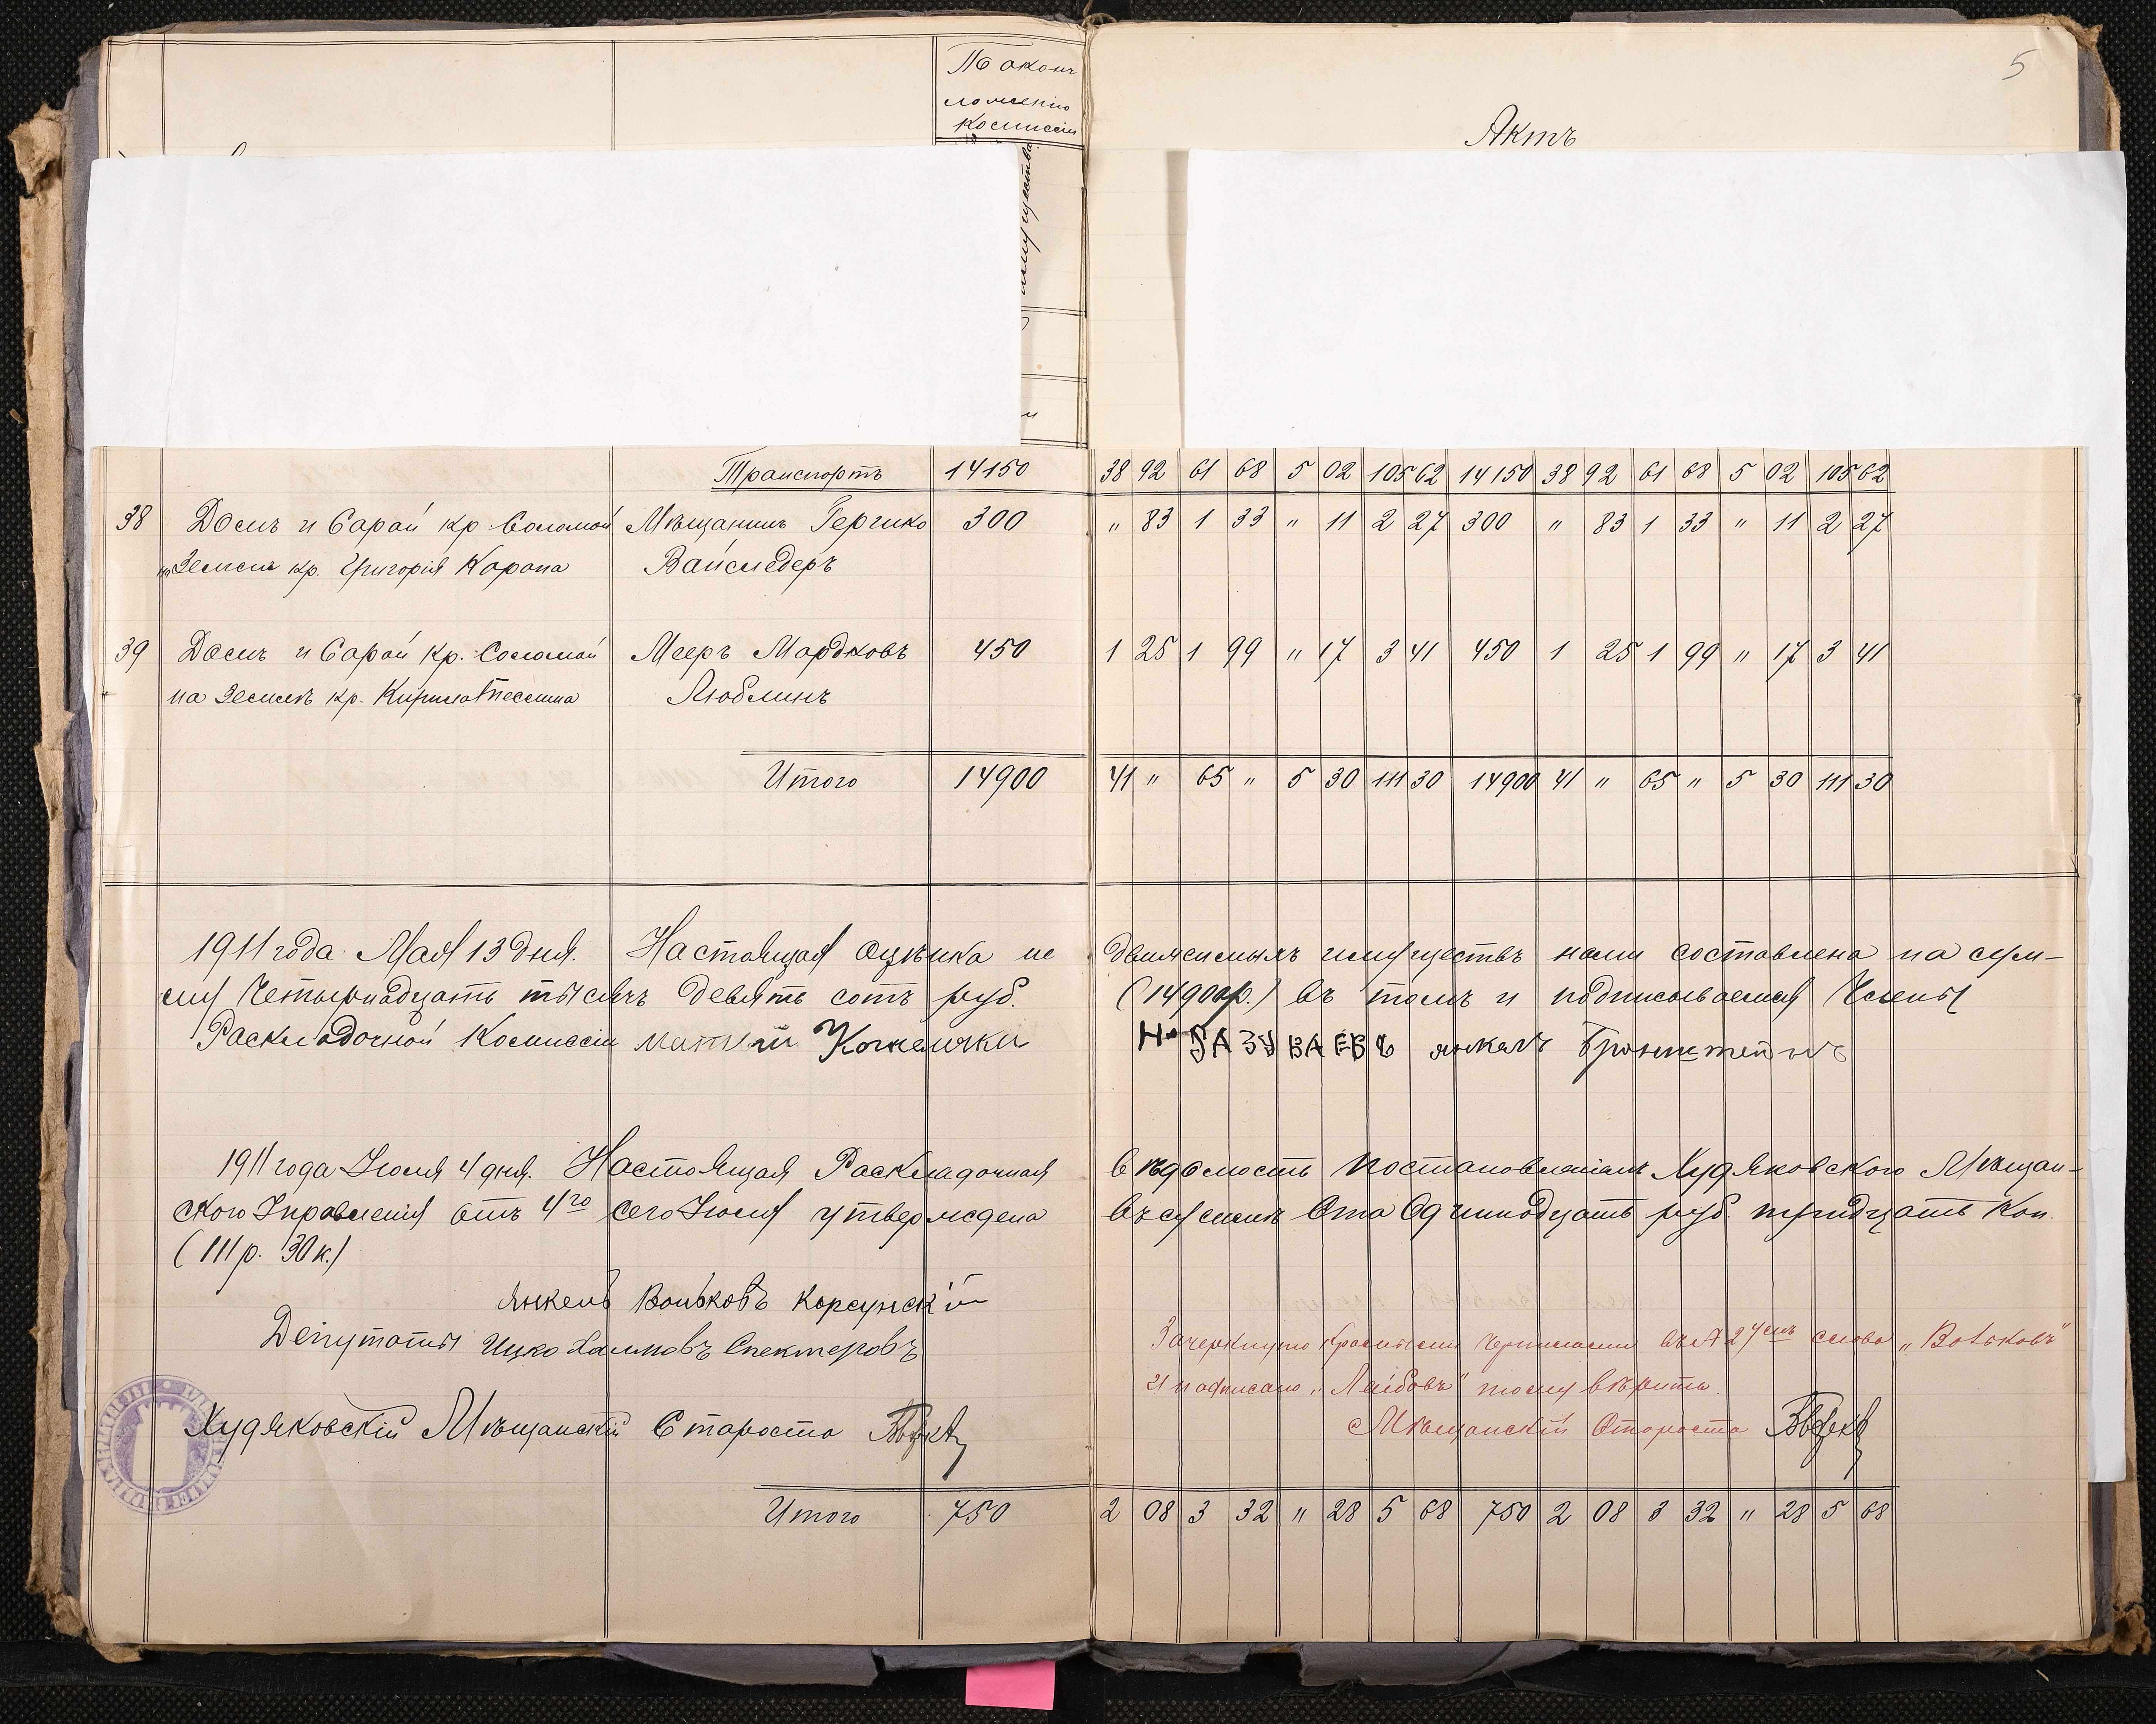 5
Актъ
Комиссіи
имущества
Транспортъ 14150 38 92 61 68 5 02 105 62 14150 38 92 61 68 5 02 105 62
38 Домъ и Сарай кр. Соломой Мѣщанинъ Гершко 300 " 83 1 33 " 11 2 27 300 " 83 1 33 " 11 2 27
на Земли кр. Григорія Карапа Вайследеръ
39 Домъ и Сарай кр. Соломой Мееръ Мордковъ 450 1 25 1 99 " 17 3 41 450 1 25 1 99 " 17 3 41
на Землѣ кр. Кирила Люблинъ
Итого 14900 41 " 65 " 5 30 111 30 14900 41 " 65 " 5 30 111 30
1911 года Мая 13 дня. Настоящая Оцѣнка не движимыхъ имуществъ нами составлена на сум-
му Четырнадцать тысячъ девять сотъ руб. (14900р.) въ томъ и подписываемся Члены
Раскладочной Комиссіи Н. РАЗУВАЕВЪ янкель Бронштейнъ
1911 года Іюля 4 дня. Настоящая Раскладочная вѣдомость постановленіемъ Худяковского Мѣщан-
ского Управленія отъ 4го сего Іюля утверждена въ суммѣ Сто Одиннадцать руб. тридцать коп.
(111 р. 30 к.)
Янкель Вольковъ Корсунскій
Депутаты Ицко Хаимовъ Спекторовъ
Зачеркнуто красными чернилами въ № 24мъ слово „Вольковъ"
и надписано „Лейбовъ" тому вѣрить.
Худяковскій Мѣщанскій Староста
Мѣщанскій Староста
Итого 750 2 08 3 32 " 28 5 68 750 2 08 3 32 " 28 5 68